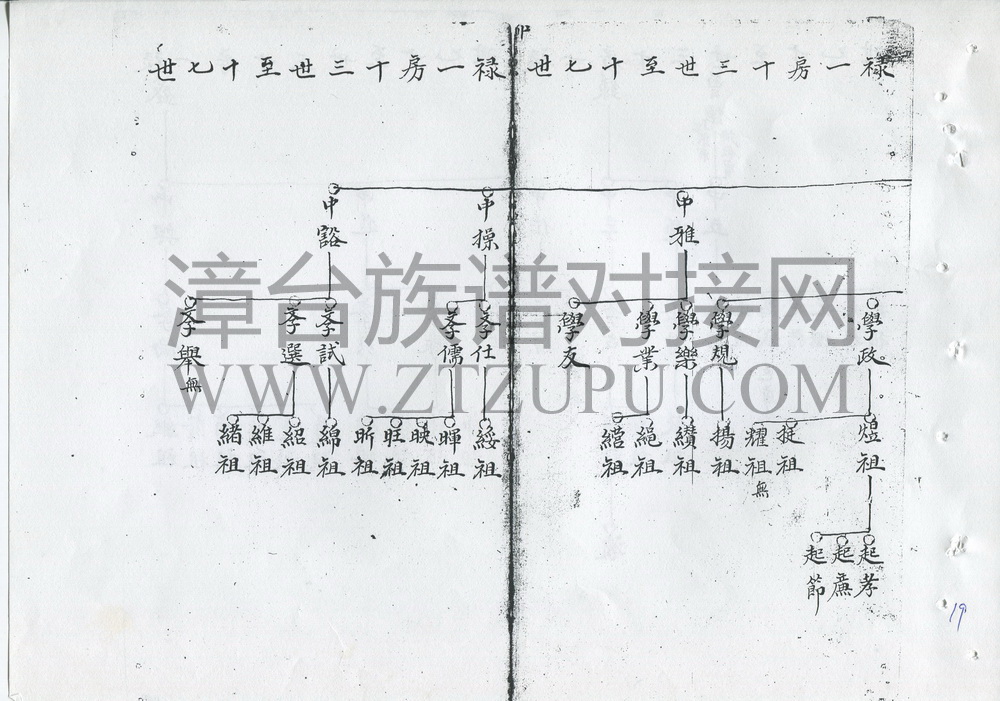 祿一房十三世至十七世
祿一房十三世至十七世
中雅
中操
中豁
學政
學規
學樂
學業
學友
孝仕
孝儒
孝試
孝選
孝舉無
煌祖
挺祖
耀祖無
揚祖
纘祖
繩祖
綹祖
綏祖
暉祖
映祖
旺祖
昕祖
綿祖
紹祖
維祖
緒祖
起孝
起廉
起節
漳台族谱对接网
WWW.ZTZUPU.COM
19